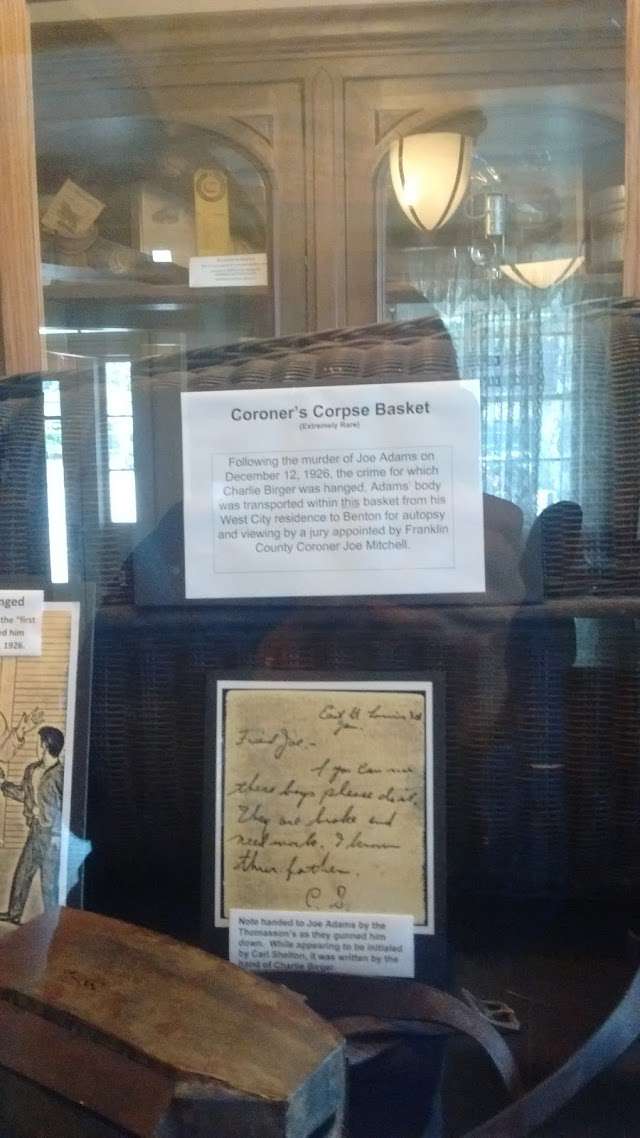 Coroner's Corpse Basket
(Extremely Rare)
Following the murder of Joe Adams on
December 12, 1926, the crime for which
Charlie Birger was hanged, Adams' body
was transported within this basket from his
West City residence to Benton for autopsy
and viewing by a jury appointed by Franklin
County Coroner Joe Mitchell.
nged
the "first
ed him
1926.
Friend Joe -
If you can use
these boys please do it.
They are broke and
need work. I know
their father.
C. S.
Note handed to Joe Adams by the
Thomasson's as they gunned him
down. While appearing to be initialed
by Carl Shelton, it was written by the
hand of Charlie Birger